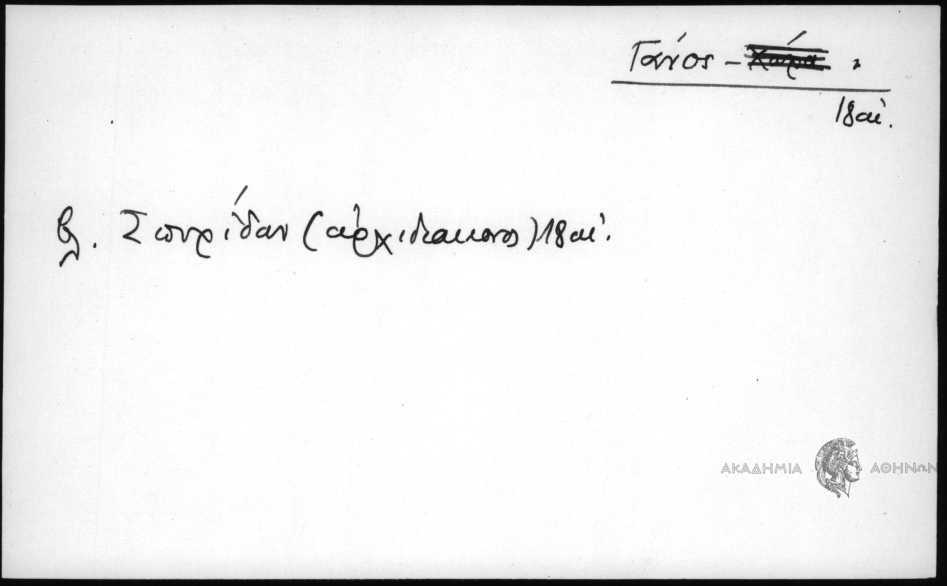 Γάνος - Χώρα.
18 αἰ.
βλ. Σπυρίδων (ἀρχιδιάκονος) 18 αἰ.
ΑΚΑΔΗΜΙΑ ΑΘΗΝΩΝ